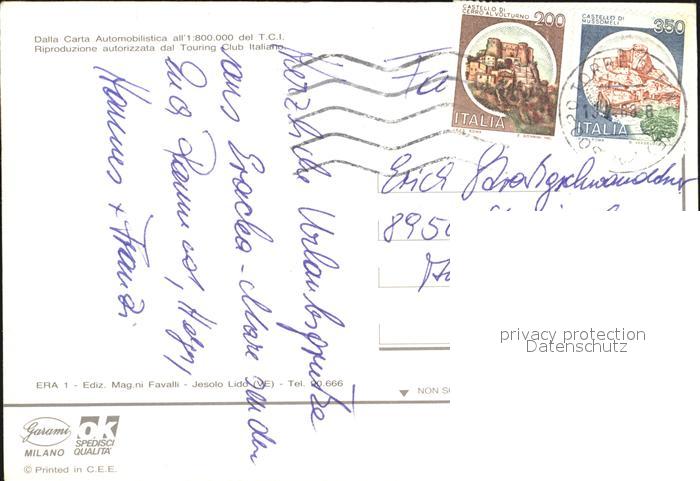 Dalla Carta Automobilistica all'1:800.000 del T.C.I.
Riproduzione autorizzata dal Touring Club Italiano.
CASTELLO DI
CERRO AL VOLTURNO
200
ITALIA
CASTELLO DI
MUSSOMELI
350
ITALIA
Herzliche Urlaubsgrüße
aus Eraclea-Mare senden
Hannes + Franzi
Fa
Erich
895
privacy protection
Datenschutz
ERA 1 - Ediz. Mag.ni Favalli - Jesolo Lido (VE) - Tel. 90.666
NON S
Garami
MILANO
ok
SPEDISCI
QUALITÀ
© Printed in C.E.E.